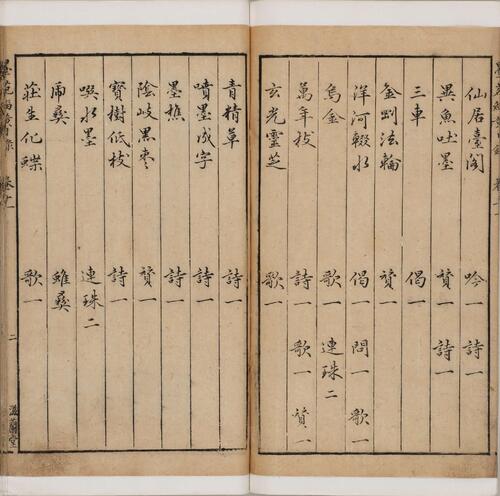 仙居臺閣 吟一 詩一
異魚吐墨 贊一 詩一
三車 偈一
金剛法輪 贊一
洋河輟水 偈一 問一 歌一
烏金 歌一 連珠二
萬年枝 詩一 歌一 贊一
玄光靈芝 歌一
青精草 詩一
噴墨成字 詩一
墨樵 詩一
陰岐黑棗 贊一
寶樹低枝 詩一
噀水墨 連珠二
虎彝 雖彝
莊生化蝶 歌一
二
滋蘭堂